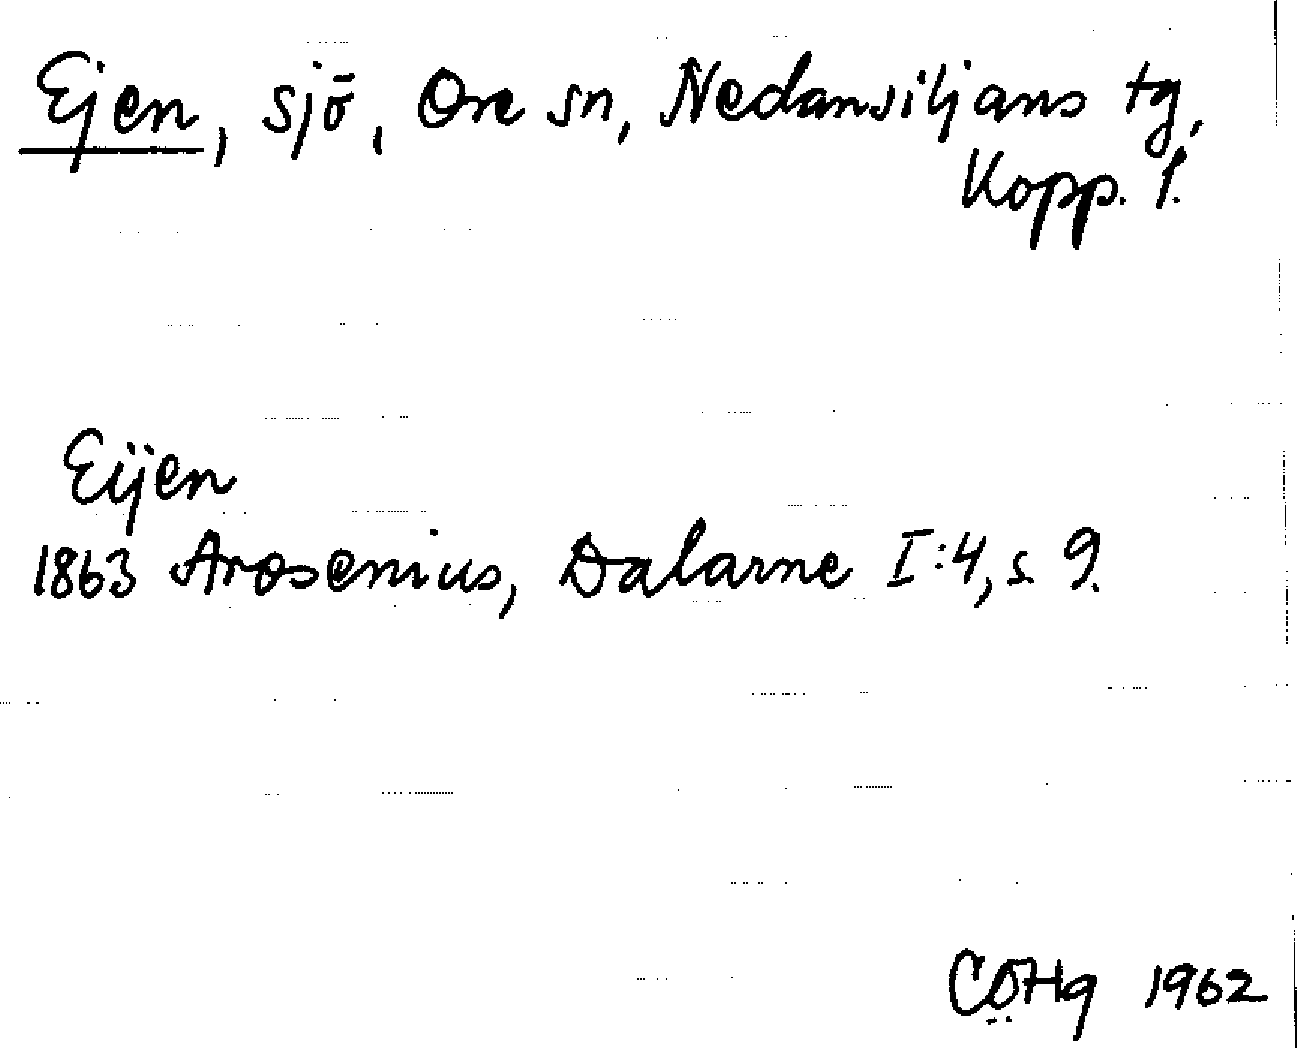 Ejen, sjö, Ore sn, Nedansiljans tg,
Kopp. l.
Eijen
1863 Arosenius, Dalarne I:4, s. 9.
COHg 1962